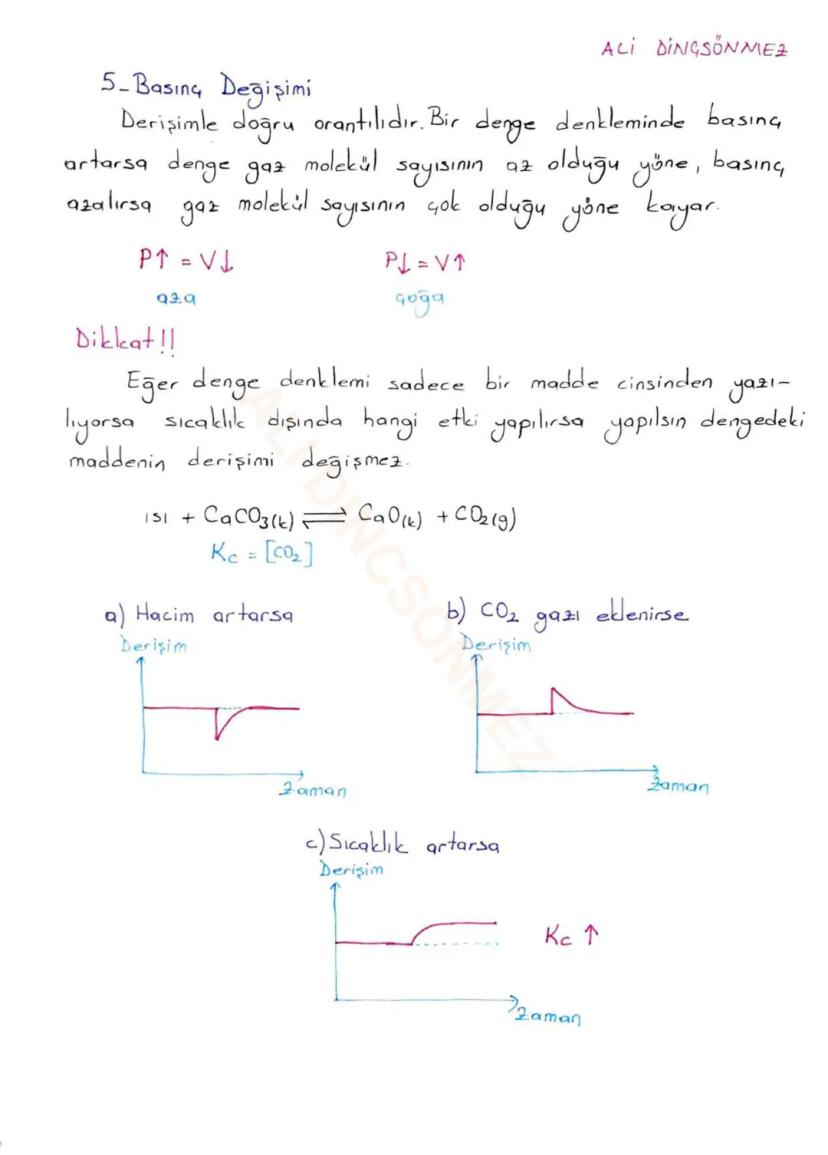 ALİ DİNÇSÖNMEZ
5-Basınç Değişimi
Derişimle doğru orantılıdır. Bir denge denkleminde basınç
artarsa denge gaz molekül sayısının az olduğu yöne, basınç
azalırsa gaz molekül sayısının çok olduğu yöne kayar.
P↑ = V↓ P↓ = V↑
aza çoğa
Dikkat!!
Eğer denge denklemi sadece bir madde cinsinden yazı-
lıyorsa sıcaklık dışında hangi etki yapılırsa yapılsın dengedeki
maddenin derişimi değişmez.
ısı + CaCO3(k) ⇌ CaO(k) + CO2(g)
Kc = [CO2]
a) Hacim artarsa b) CO2 gazı eklenirse
Derişim Derişim
Zaman Zaman
c) Sıcaklık artarsa
Derişim
Kc ↑
Zaman
ALİ DİNÇSÖNMEZ